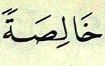 خَالِصَةً